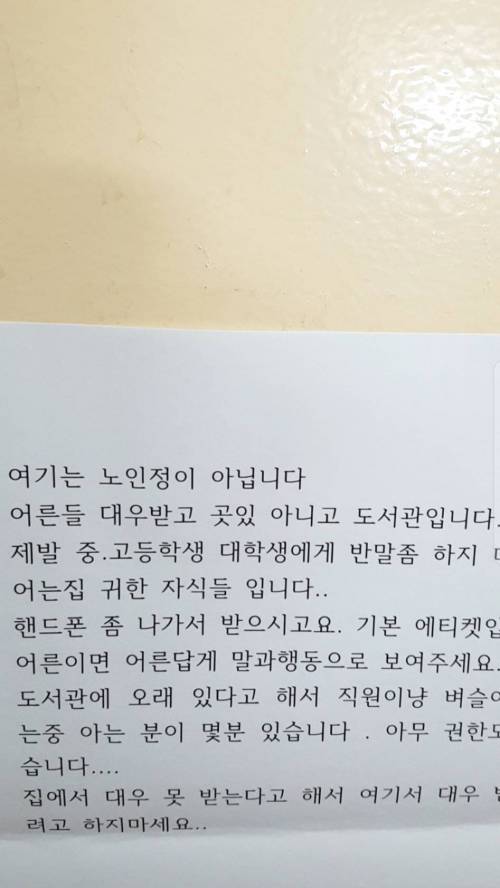 여기는 노인정이 아닙니다
어른들 대우받고 곳있 아니고 도서관입니다.
제발 중.고등학생 대학생에게 반말좀 하지
어는집 귀한 자식들 입니다..
핸드폰 좀 나가서 받으시고요. 기본 에티켓입
어른이면 어른답게 말과행동으로 보여주세요.
도서관에 오래 있다고 해서 직원이냥 벼슬
는중 아는 분이 몇분 있습니다 . 아무 권한
습니다....
집에서 대우 못 받는다고 해서 여기서 대우
려고 하지마세요..